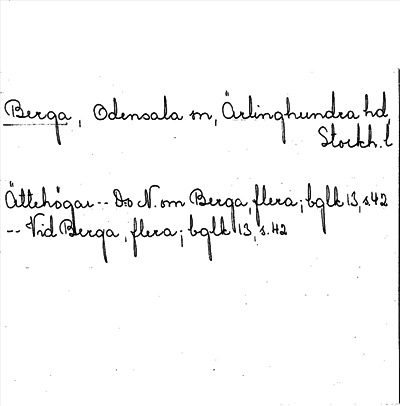 Berga, Odensala sn, Ärlinghundra hd,
Stockh. l
Ättehögar -- Do N. om Berga, flera; bglk 13, s. 42
-- Vid Berga, flera; bglk 13, s. 42